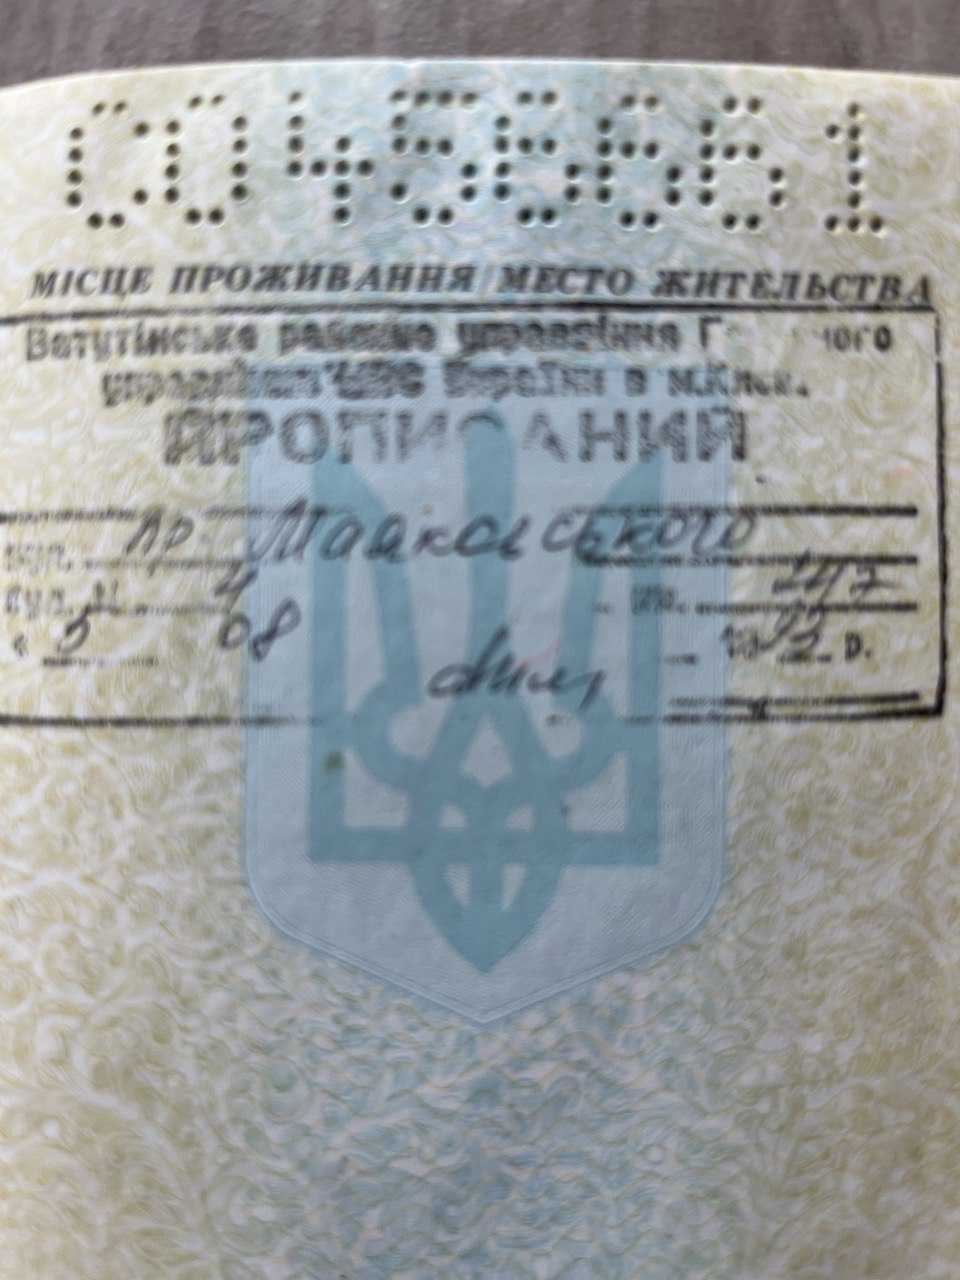 СО456661
МІСЦЕ ПРОЖИВАННЯ/МЕСТО ЖИТЕЛЬСТВА
Ватутінське районне управління Г ного
управління МВС України в м.Києві
ПРОПИСАНИЙ
вул. пр. Маяковського
буд. № 4 кв.
« 5 08 19 р.